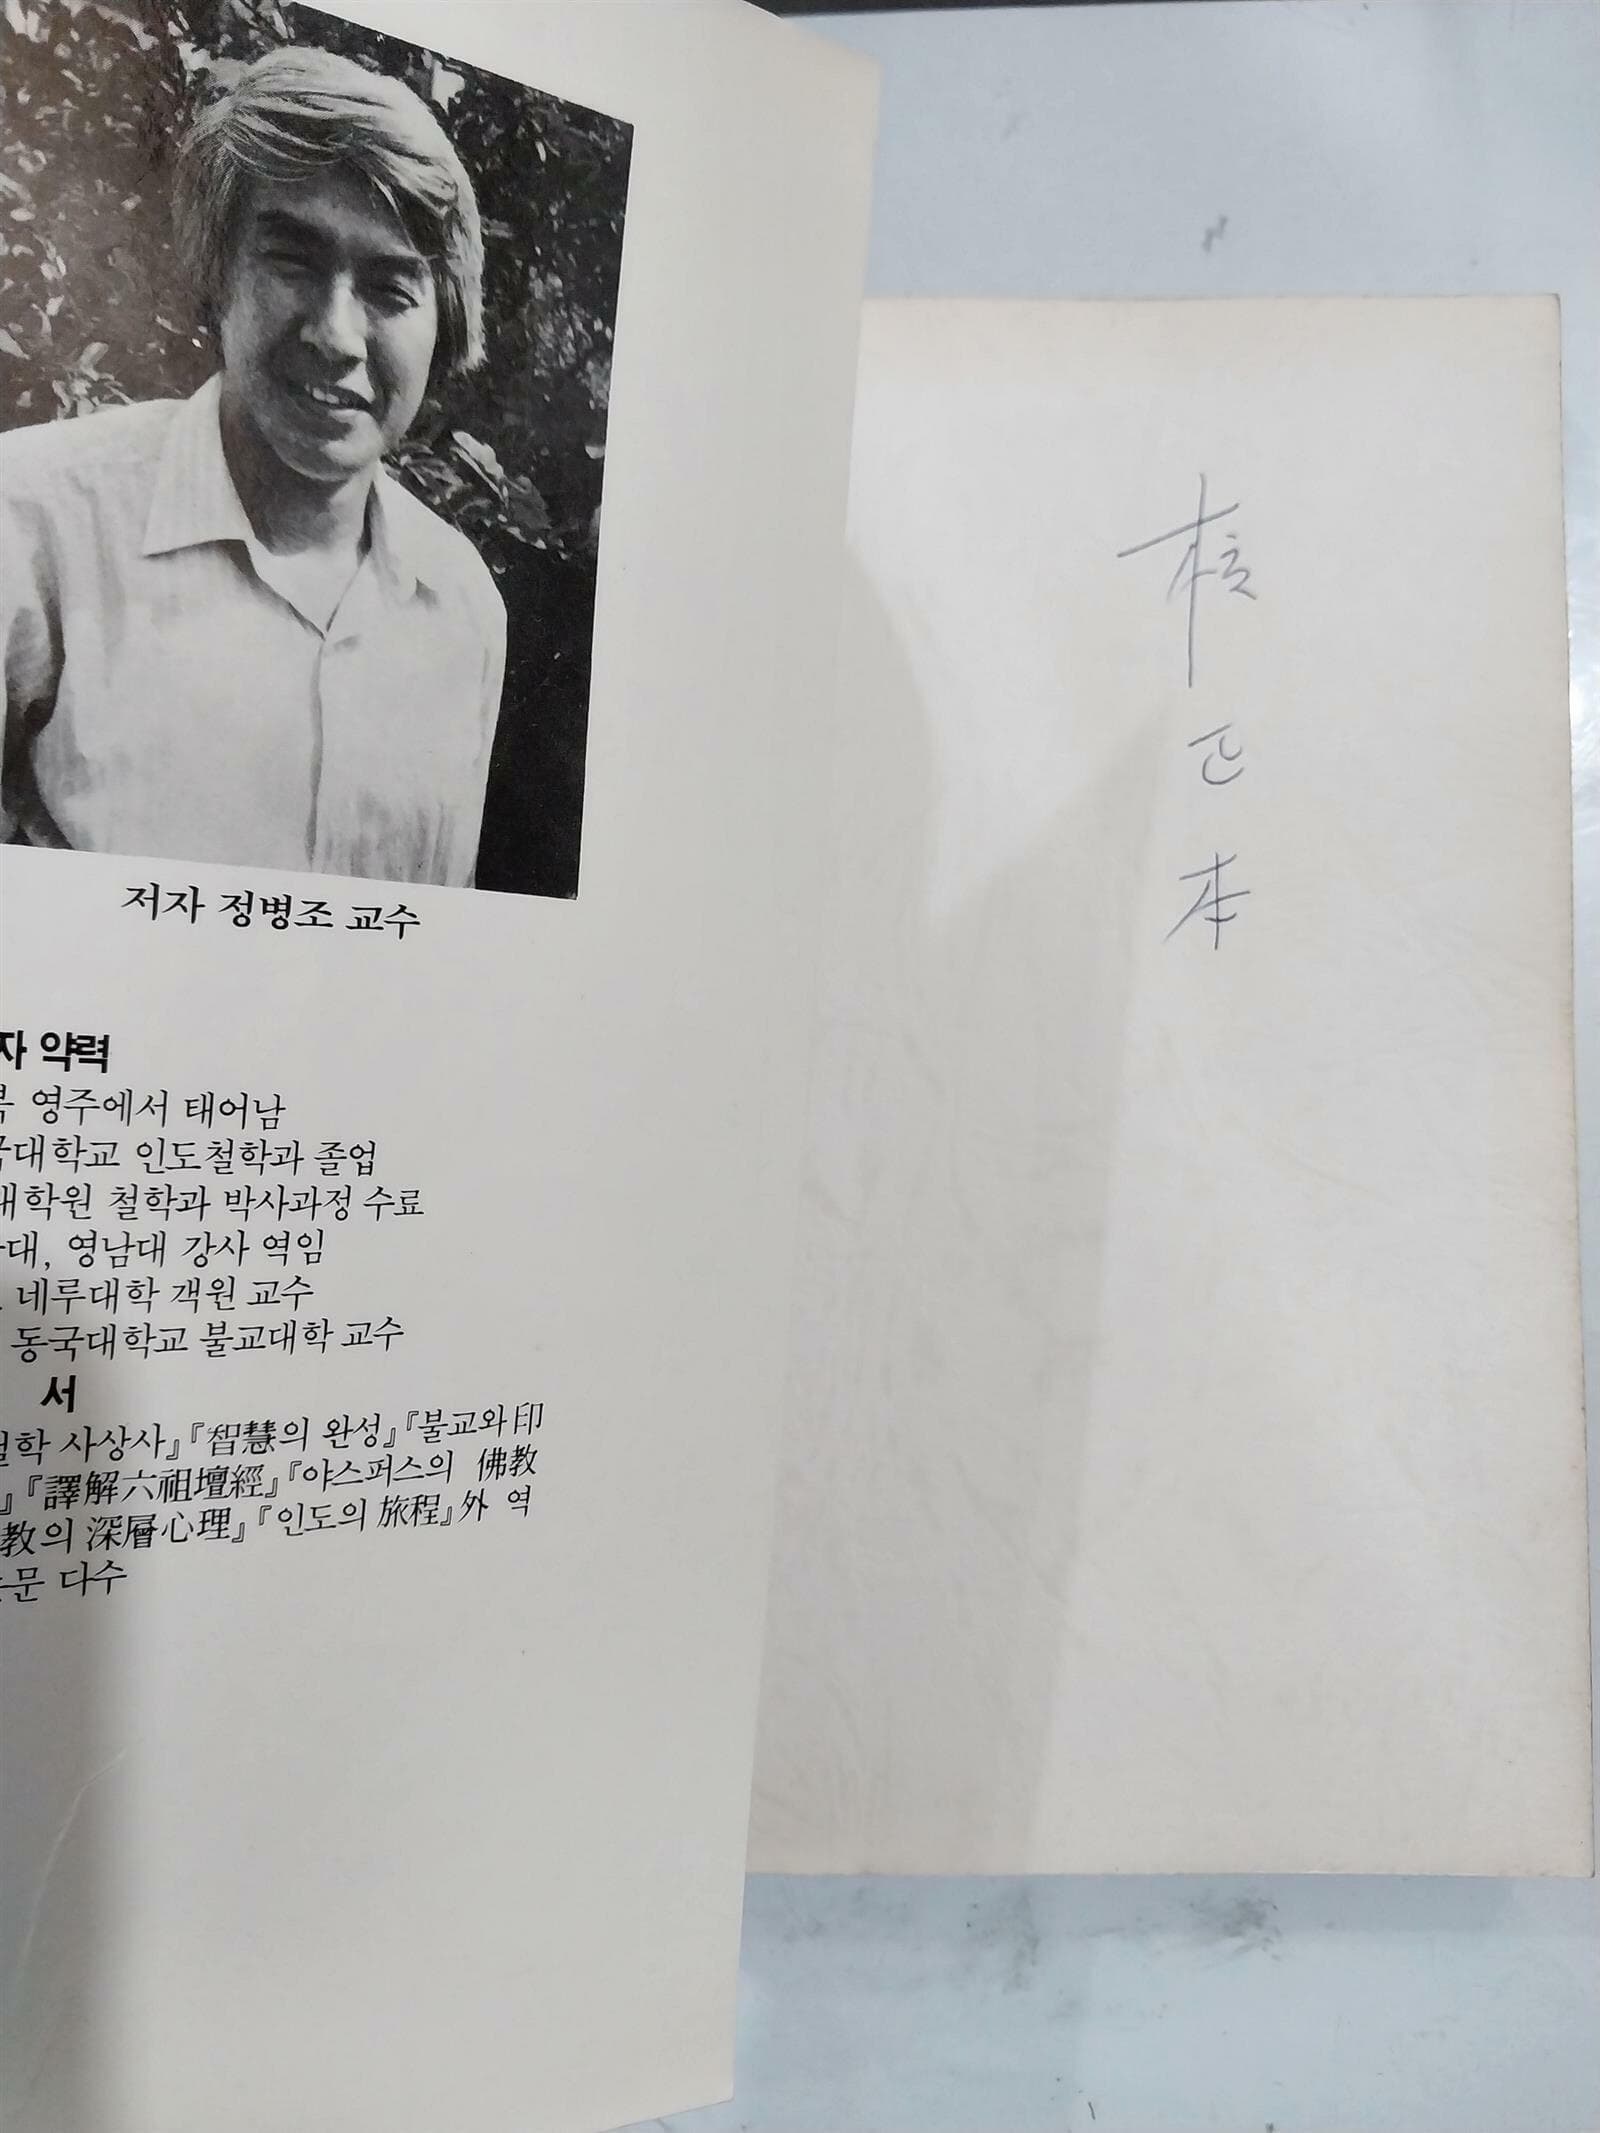 저자 정병조 교수
자 약력
북 영주에서 태어남
국대학교 인도철학과 졸업
대학원 철학과 박사과정 수료
대, 영남대 강사 역임
네루대학 객원 교수
동국대학교 불교대학 교수
서
철학 사상사』『智慧의 완성』『불교와 印
』『譯解六祖壇經』『야스퍼스의 佛教
教의 深層心理』『인도의 旅程』外 역
논문 다수
校
正
本